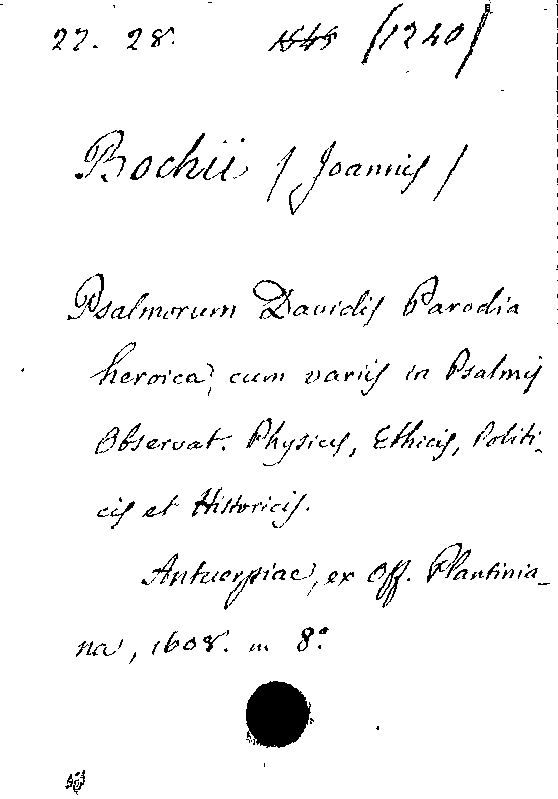 27. 28. 1545 (1240)
Bochii (Joannis)
Psalmorum Davidis Parodia
heroica, cum variis in Psalmis
Observat. Physicis, Ethicis, Politi-
cis et Historicis.
Antuerpiae, ex Off. Plantinia-
na, 1608. in 8.º